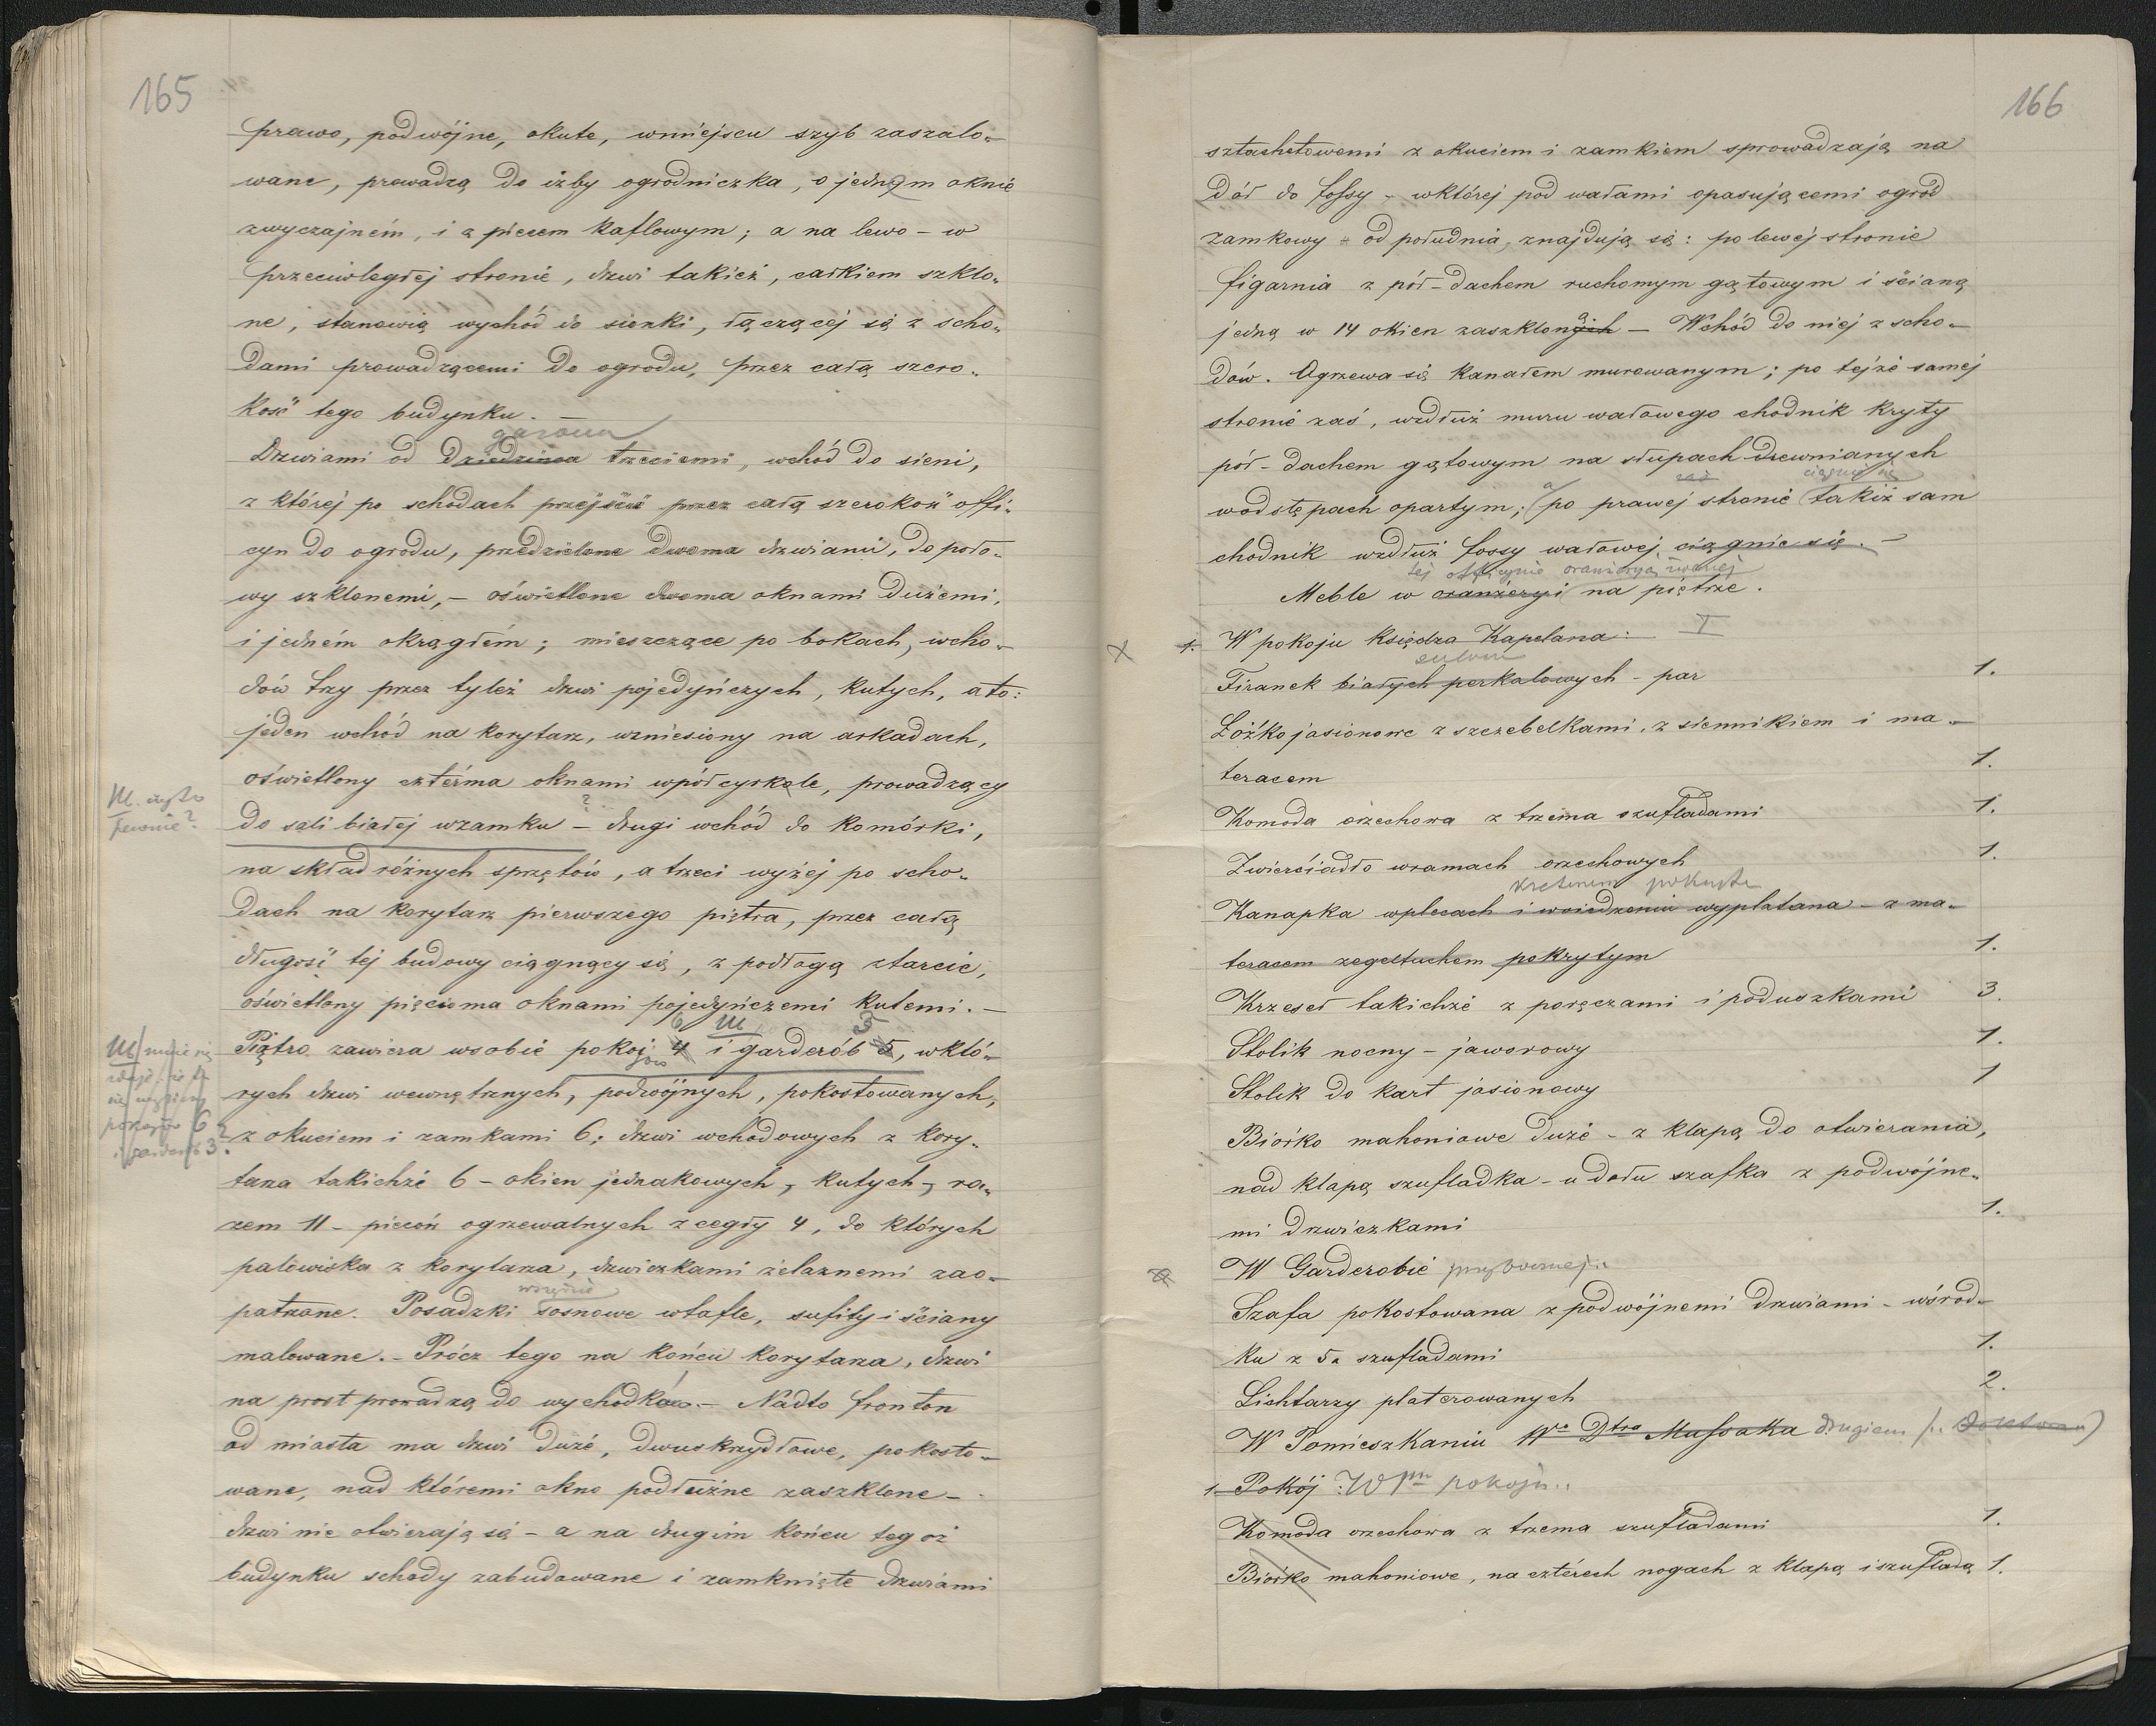 165
prawo, podwójne, okute, wmiejscu szyb zaszalo-
wane, prowadzą do izby ogrodniczka, o jednym oknie
zwyczajném, i z piecem kaflowym; a na lewo - w
przeciwległej stronie, drzwi takież, całkiem szklo-
ne, stanowią wychód do sionki, łączącej się z scho-
dami prowadzącemi do ogrodu, przez całą szero-
kość tego budynku. —
gazonu
Drzwiami od dziedzińca trzeciemi, wchód do sieni,
z której po schodach przejście przez całą szerokość offi-
cyn do ogrodu, przedzielone dwoma drzwiami, do poło-
wy szklonemi, - oświetlone dwoma oknami dużemi,
i jedném okrągłém; mieszczące po bokach, wcho-
dów trzy przez tyleż drzwi pojedyńczych, kutych, a to:
jeden wchód na korytarz, wzniesiony na arkadach,
oświetlony cztérma oknami wpółcyrkole, prowadzący
do sali białej wzamku - drugi wchód do komórki,
?
na skład różnych sprzętów, a trzeci wyżej po scho-
dach na korytarz pierwszego piętra, przez całą
długość tej budowy ciągnący się, z podłogą z tarcic,
oświetlony pięcioma oknami pojedyńczemi kutemi. —
6 3
Piętro zawiera wsobie pokoj 4 i garderób 5, wktó-
jów
rych drzwi wewnętrznych, podwójnych, pokostowanych,
z okuciem i zamkami 6; drzwi wchodowych z kory-
tarza takichże 6 - okien jednakowych, kutych, ra-
zem 11 - piecón ogrzewalnych z cegły 4, do których
palewiska z korytarza, drzwiczkami żelaznemi zao-
wszędzie
patrzone. Posadzki sosnowe wtafle, sufity i ściany
malowane. - Prócz tego na końcu korytarza, drzwi
na prost prowadzą do wychodków. - Nadto fronton
od miasta ma drzwi duże, dwuskrzydłowe, pokosto-
wane, nad któremi okno podłużne zaszklone -
drzwi nie otwierają się - a na drugim końcu tegoż
budynku schody zabudowane i zamknięte drzwiami
pokojów 6
166
sztachetowemi z okuciem i zamkiem sprowadzają na
dół do fossy - wktórej pod wałami opasującemi ogród
zamkowy - od południa, znajdują się: po lewej stronie
figarnia z pół-dachem ruchomym gątowym i ścianą
jedną w 14 okien zaszklonych - Wchód do niej z scho-
ą
dów. Ogrzewa się kanałem murowanym; po tejże samej
stronie zaś, wzdłuż muru wałowego chodnik kryty
pół-dachem gątowym na słupach drewnianych
a zaś ciągnie się
wodstępach opartym; po prawej stronie takiż sam
chodnik wzdłuż fossy wałowej ciągnie się. —
tej officynie oranżeryą zwanej
Meble w oranżeryi na piętrze.
1. W pokoju Księdza Kapelana: I
Firanek białych perkalowych - par 1.
Łóżko jasionowe z szczebelkami, z siennikiem i ma-
teracem 1.
Komoda orzechowa z trzema szufladami 1.
Zwierciadło wramach orzechowych 1.
kretonem pokryta
Kanapka wplecach i wsiedzeniu wyplatana - z ma-
teracem zegeltuchem pokrytym 1.
Krzeseł takichże z poręczami i poduszkami 3.
Stolik nocny - jaworowy 1.
Stolik do kart jasionowy 1
Biórko mahoniowe duże - z klapą do otwierania,
nad klapą szufladka - u dołu szafka z podwójne-
mi drzwiczkami 1.
W Garderobie przybocznej:
Szafa pokostowana z podwójnemi drzwiami - wśrod-
ku z 5a szufladami 1.
Lichtarzy platerowanych 2.
W Pomieszkaniu Wgo Dtra Mussaka drugiem (: Doktora)
1 Pokój: W 1m pokoju:
Komoda orzechowa z trzema szufladami 1.
Biórko mahoniowe, na cztérech nogach z klapą i szufladą 1.